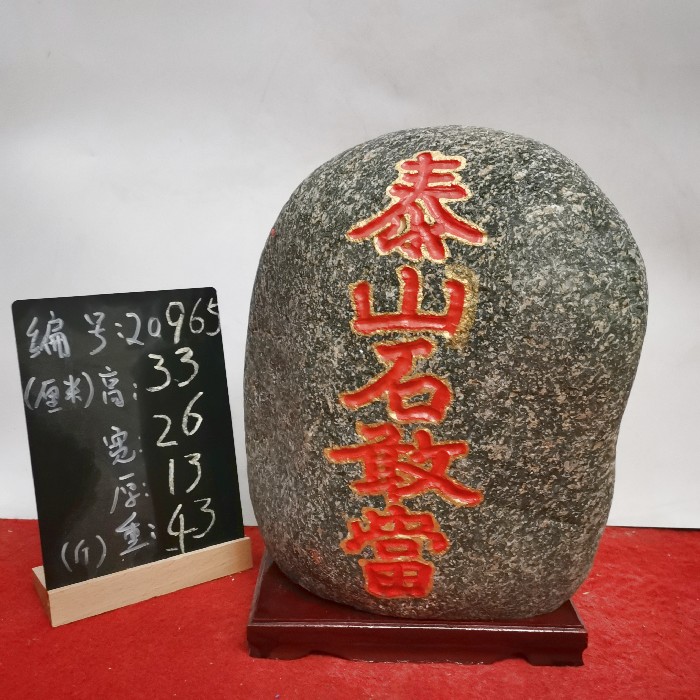 编号:20965
(厘米)高:33
宽:26
厚:13
(斤)重:43
泰山石敢當